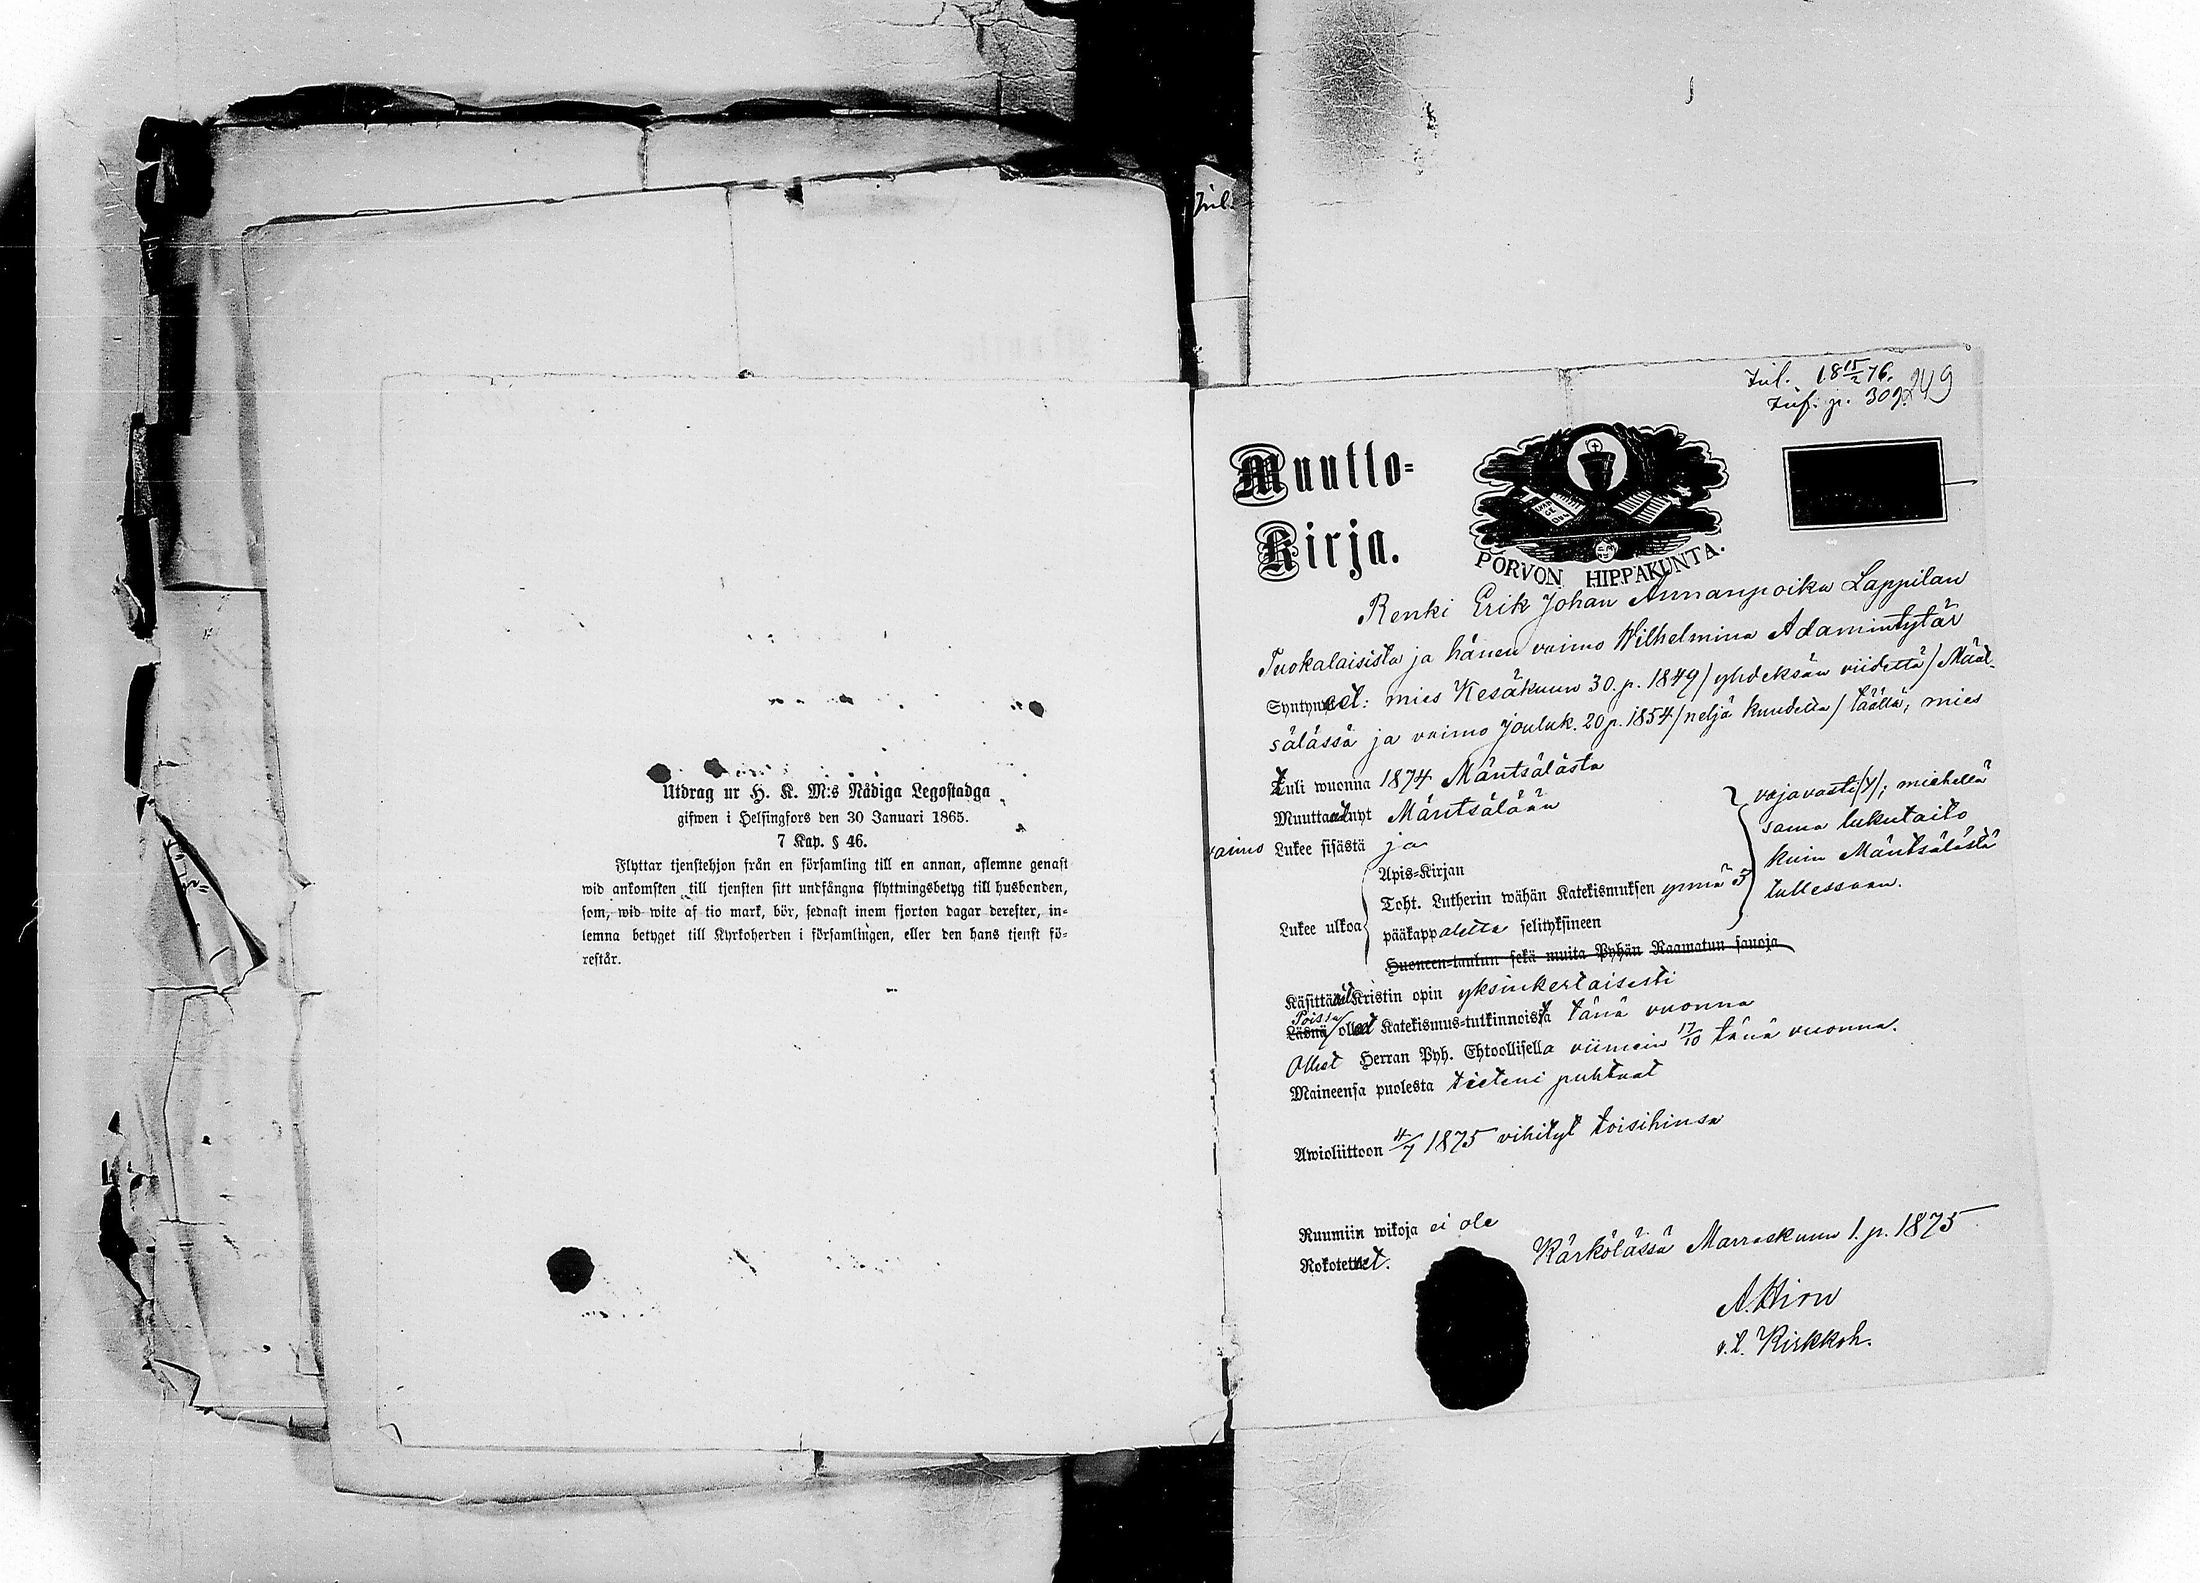 Utdrag ur H. K. M:s Nådiga Legostadga
gifwen i Helsingfors den 30 Januari 1865.
7 Kap. § 46.
Flyttar tjenstehjon från en församling till en annan, aflemne genast
wid ankomsten till tjensten sitt undfångna flyttningsbetyg till husbonden,
som, wid wite af tio mark, bör, sednast inom fjorton dagar derefter, in-
lemna betyget till Kyrkoherden i församlingen, eller den hans tjenst fö-
restår.
Jul.
Jul. 18 15/2 76.
Inf. p. 309. 249
Muutto-
Kirja.
PORVON HIPPAKUNTA.
Renki Erik Johan Annanpoika Lappilan
Tuokalaisista ja hänen vaimo Wilhelmina Adamintytär
Syntyneet: mies Kesäkuun 30. p. 1849 / yhdeksän viidettä / Mänt-
sälässä ja vaimo Jouluk. 20 p. 1854 / neljä kuudetta / täällä; mies
tuli wuonna 1874 Mäntsälästä
Muuttavat nyt Mäntsälään
vaimo Lukee sisästä ja
Lukee ulkoa
Apis-Kirjan
Toht. Lutherin wähän Katekismuksen ynnä 5
pääkappaletta selityksineen
Huoneen-taulun sekä muita Pyhän Raamatun sanoja
vajavasti (y); miehellä
sama lukutaito
kuin Mäntsälästä
tullessaan.
Käsittävät Kristin opin yksinkertaisesti
Poissa
Läsnä olleet Katekismus-tutkinnoista tänä vuonna
Olleet Herran Pyh. Ehtoollisella viimein 17/10 tänä vuonna.
Maineensa puolesta tieteni puhtaat
Awioliittoon 4/7 1875 vihityt toisihinsa
Ruumiin wikoja ei ole
Rokotetut.
Kärkölässä Marraskuun 1. p. 1875
A. Hirn
v. t. Kirkkoh.